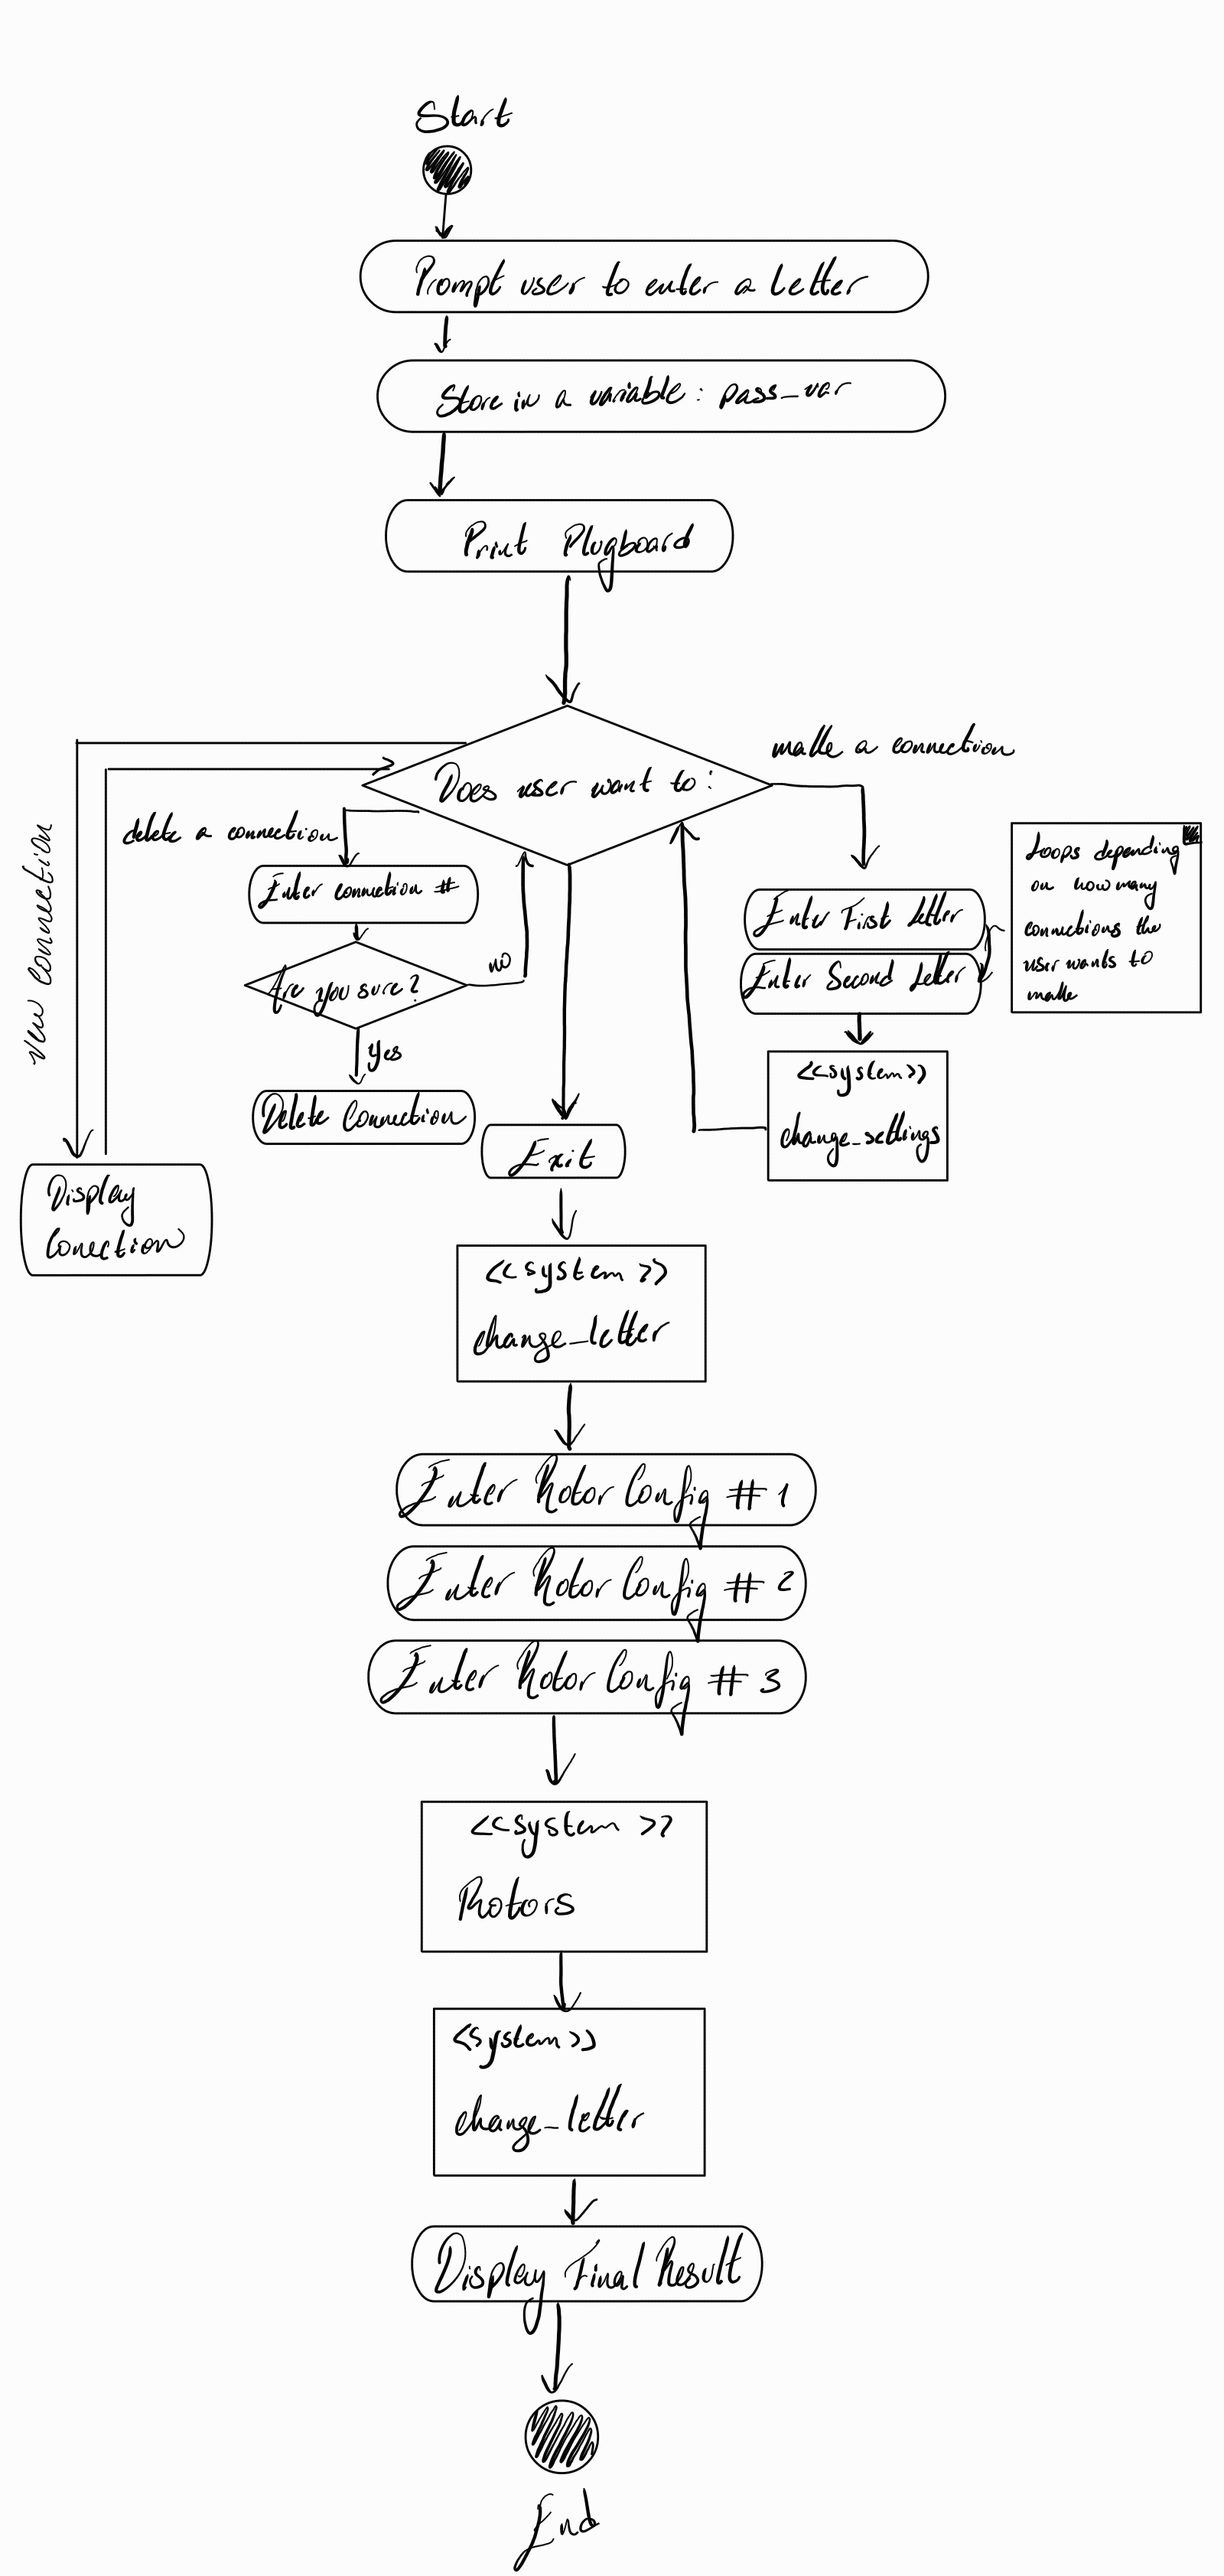 Start
Prompt user to enter a letter
Store in a variable: pass_var
Print Plugboard
Does user want to:
make a connection
delete a connection
Enter connection #
Are you sure?
no
Yes
Delete Connection
Display
Conection
Exit
Enter First Letter
Enter Second Letter
Loops depending
on how many
connections the
user wants to
make
<<system>>
change_settings
<<system>>
change_letter
Enter Rotor Config # 1
Enter Rotor Config # 2
Enter Rotor Config # 3
<<system>>
Rotors
<system>>
change_letter
Display Final Result
End